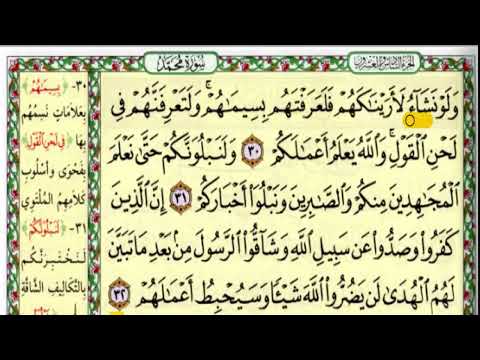 الجزء السادس والعشرون
سورة محمد
وَلَوْ نَشَآءُ لَأَرَيْنَٰكَهُمْ فَلَعَرَفْتَهُم بِسِيمَٰهُمْ ۚ وَلَتَعْرِفَنَّهُمْ فِى
لَحْنِ ٱلْقَوْلِ ۚ وَٱللَّهُ يَعْلَمُ أَعْمَٰلَكُمْ ٣٠ وَلَنَبْلُوَنَّكُمْ حَتَّىٰ نَعْلَمَ
ٱلْمُجَٰهِدِينَ مِنكُمْ وَٱلصَّٰبِرِينَ وَنَبْلُوَا۟ أَخْبَارَكُمْ ٣١ إِنَّ ٱلَّذِينَ
كَفَرُوا۟ وَصَدُّوا۟ عَن سَبِيلِ ٱللَّهِ وَشَآقُّوا۟ ٱلرَّسُولَ مِنۢ بَعْدِ مَا تَبَيَّنَ
لَهُمُ ٱلْهُدَىٰ لَن يَضُرُّوا۟ ٱللَّهَ شَيْـًٔا وَسَيُحْبِطُ أَعْمَٰلَهُمْ ٣٢
٣٠- ﴿بِسِيمَٰهُمْ﴾
بِعَلَامَاتٍ نَسِمُهُمْ
بِهَا ﴿فِي لَحْنِ الْقَوْلِ﴾
بِفَحْوَى وَأُسْلُوبِ
كَلَامِهِمُ الْمُلْتَوِي
٣١- ﴿لَنَبْلُوَنَّكُمْ﴾
لَنَخْتَبِرَنَّكُمْ
بِالتَّكَالِيفِ الشَّاقَّةِ